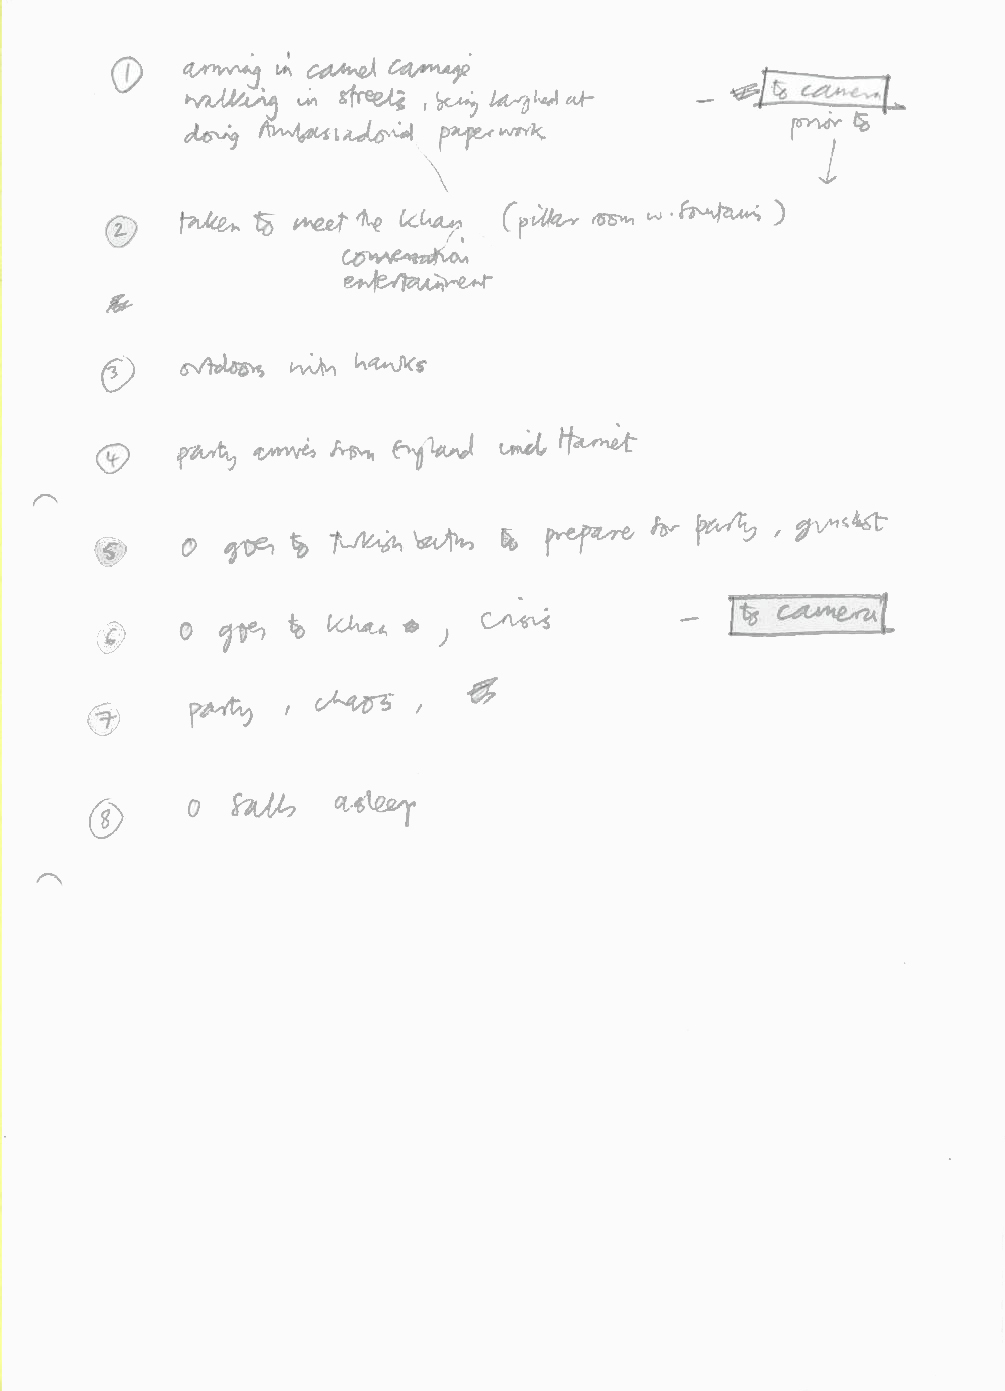 1 arriving in camel carriage
walking in streets, being laughed at - to camera
doing Ambassadorial paperwork prior to
2 taken to meet the Khan (pillar room w. fountains)
conversation
entertainment
3 outdoors with hawks
4 party arrives from England incl. Harriet
5 O goes to Turkish baths to prepare for party, gunshot
6 O goes to Khan, crisis - to camera
7 party, chaos,
8 O falls asleep